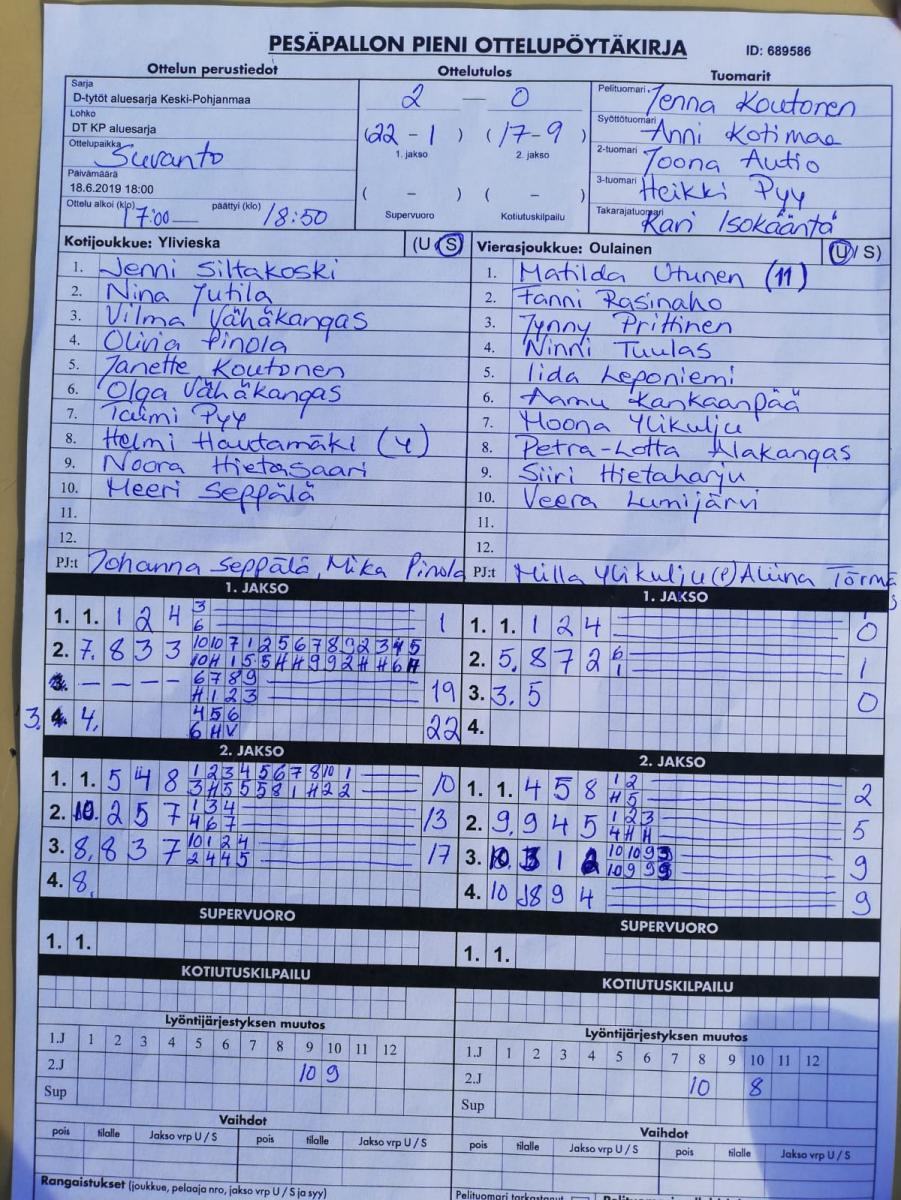 PESÄPALLON PIENI OTTELUPÖYTÄKIRJA
ID: 689586
Ottelun perustiedot
Sarja
D-tytöt aluesarja Keski-Pohjanmaa
Lohko
DT KP aluesarja
Ottelupaikka
Suvanto
Päivämäärä
18.6.2019 18:00
Ottelu alkoi (klo) 17:00 päättyi (klo) 18:50
Ottelutulos
2 — 0
(22 - 1) (17-9)
1. jakso 2. jakso
( - ) ( - )
Supervuoro Kotiutuskilpailu
Tuomarit
Pelituomari Jenna Koutonen
Syöttötuomari Anni Kotimaa
2-tuomari Joona Autio
3-tuomari Heikki Pyy
Takarajatuomari Kari Isokääntä
Kotijoukkue: Ylivieska (U S)
1. Jenni Siltakoski
2. Nina Jutila
3. Vilma Vähäkangas
4. Olivia Pinola
5. Janette Koutonen
6. Olga Vähäkangas
7. Taimi Pyy
8. Helmi Hautamäki (4)
9. Noora Hietasaari
10. Meeri Seppälä
11.
12.
PJ:t Johanna Seppälä, Mika Pinola
Vierasjoukkue: Oulainen (U/S)
1. Matilda Utunen (11)
2. Fanni Rasinaho
3. Jynny Prittinen
4. Ninni Tuulas
5. Iida Leponiemi
6. Aamu Kankaanpää
7. Moona Ylikulju
8. Petra-Lotta Alakangas
9. Siiri Hietaharju
10. Veera Lumijärvi
11.
12.
PJ:t Milla Ylikulju (P) Aliina
1. JAKSO
1. 1. 1 2 4 3 1
6
2. 7. 8 3 3 10 10 7 1 2 5 6 7 8 9 2 3 4 5
– – – – 6 7 8 9 19
H 1 2 3
3. 4. 4 5 6 22
6 H V
1. JAKSO
1. 1. 1 2 4 0
2. 5. 8 7 2 6 1
1
3. 3. 5 0
4.
2. JAKSO
1. 1. 5 4 8 1 2 3 4 5 6 7 8 10 1 10
3 H 5 5 5 8 1 H 2 2
2. 10. 2 5 7 1 3 4 13
4 6 7
3. 8. 8 3 7 10 1 2 4 17
2 4 4 5
4. 8.
2. JAKSO
1. 1. 4 5 8 1 2 2
H 5
2. 9. 9 4 5 1 2 3 5
4 H H
3. 10. 3 1 2 10 10 9 3 9
10 9 9 9
4. 10 8 9 4 9
SUPERVUORO
1. 1.
SUPERVUORO
1. 1.
KOTIUTUSKILPAILU
KOTIUTUSKILPAILU
Lyöntijärjestyksen muutos
1.J 1 2 3 4 5 6 7 8 9 10 11 12
2.J 10 9
Sup
Lyöntijärjestyksen muutos
1.J 1 2 3 4 5 6 7 8 9 10 11 12
2.J 10 8
Sup
Vaihdot
pois tilalle Jakso vrp U / S pois tilalle Jakso vrp U / S
Vaihdot
pois tilalle Jakso vrp U / S pois tilalle Jakso vrp U / S
Rangaistukset (joukkue, pelaaja nro, jakso vrp U / S ja syy)
Pelituomari tarkastanut